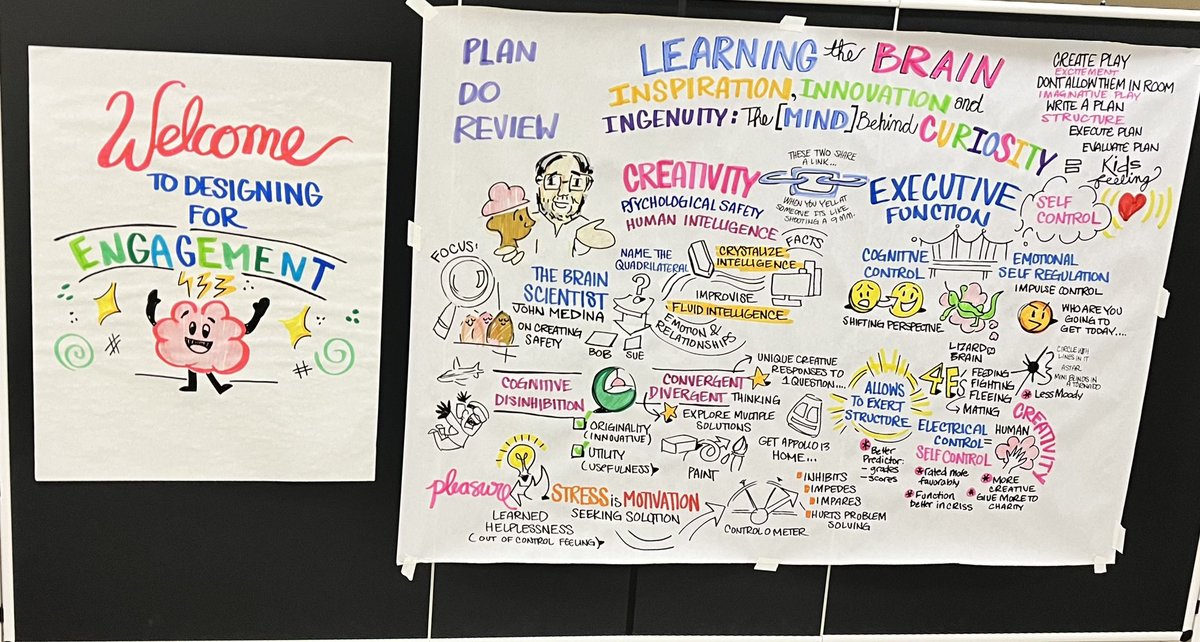 Welcome
TO DESIGNING
FOR
ENGAGEMENT
PLAN
DO
REVIEW
LEARNING the BRAIN
INSPIRATION, INNOVATION and
INGENUITY: The [MIND] Behind CURIOSITY
CREATE PLAY
EXCITEMENT
DONT ALLOW THEM IN ROOM
IMAGINATIVE PLAY
WRITE A PLAN
STRUCTURE
EXECUTE PLAN
EVALUATE PLAN
= Kids
feeling
CREATIVITY
PSYCHOLOGICAL SAFETY
HUMAN INTELLIGENCE
THESE TWO SHARE
A LINK...
WHEN YOU YELL AT
SOMEONE ITS LIKE
SHOOTING A 9 MM.
EXECUTIVE
FUNCTION
SELF
CONTROL
FOCUS:
THE BRAIN
SCIENTIST
JOHN MEDINA
ON CREATING
SAFETY
NAME THE
QUADRILATERAL
?
BOB
SUE
FACTS
CRYSTALIZE
INTELLIGENCE
IMPROVISE
FLUID INTELLIGENCE
EMOTION &
RELATIONSHIPS
COGNITIVE
CONTROL
SHIFTING PERSPECTIVE
EMOTIONAL
SELF REGULATION
IMPULSE CONTROL
WHO ARE YOU
GOING TO
GET TODAY....
LIZARD
BRAIN
4Es
FEEDING
FIGHTING
FLEEING
MATING
CIRCLE WITH
LINES IN IT
A STAR
MINI BLINDS IN A
TORNADO
* Less Moody
COGNITIVE
DISINHIBITION
CONVERGENT
DIVERGENT THINKING
UNIQUE CREATIVE
RESPONSES TO
1 QUESTION....
EXPLORE MULTIPLE
SOLUTIONS
ORIGINALITY
(INNOVATIVE)
UTILITY
(USEFULNESS)
PAINT
GET APPOLO 13
HOME...
ALLOWS
TO EXERT
STRUCTURE
* Better
Predictor:
- grades
- scores
ELECTRICAL
CONTROL =
SELF CONTROL
* rated more
favorably
* Function
better in criss
HUMAN
CREATIVITY
* MORE
CREATIVE
* GIVE MORE TO
CHARITY
pleasure
STRESS is MOTIVATION
SEEKING SOLUTION
LEARNED
HELPLESSNESS
(OUT OF CONTROL FEELING)
CONTROL O METER
INHIBITS
IMPEDES
IMPARES
HURTS PROBLEM
SOLVING